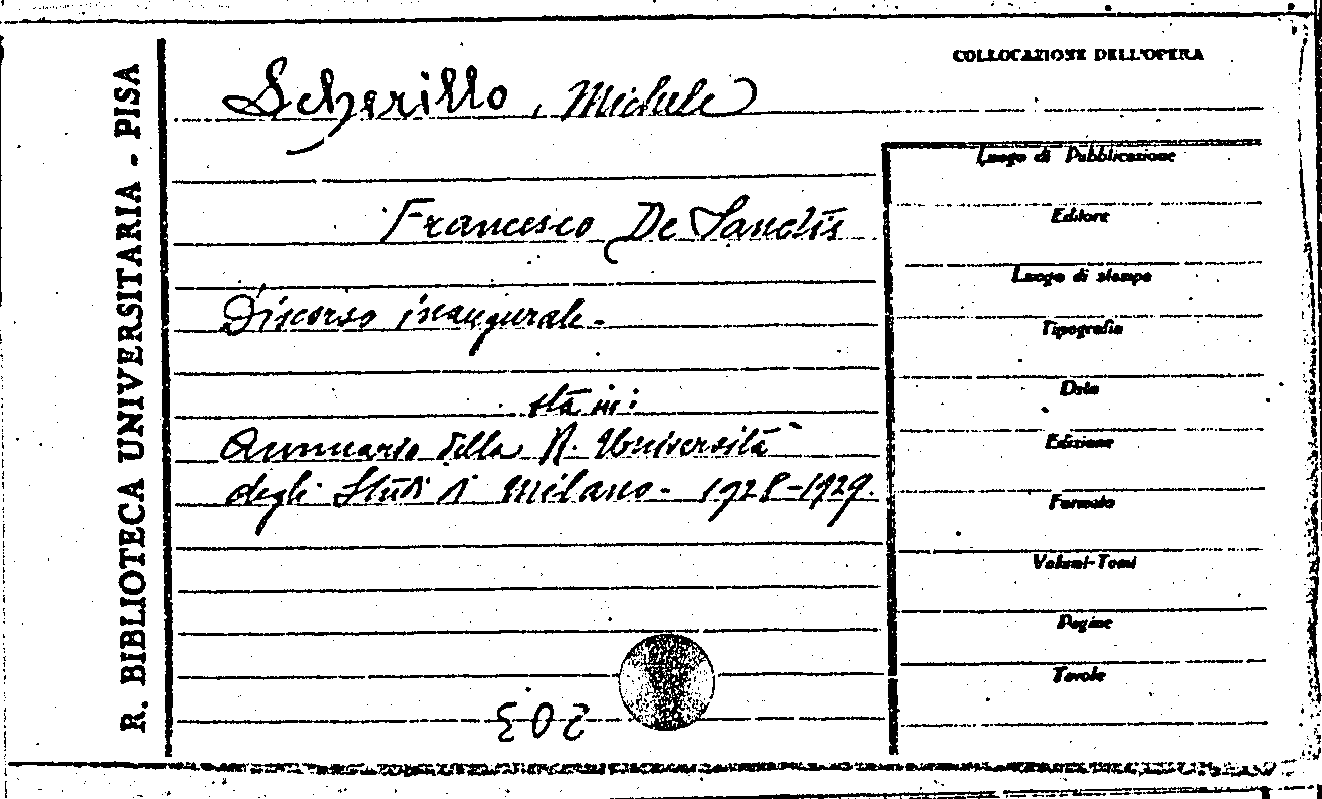 R. BIBLIOTECA UNIVERSITARIA - PISA
COLLOCAZIONE DELL'OPERA
Scherillo, Michele
Luogo di Pubblicazione
Francesco De Sanctis
Editore
Luogo di stampa
Discorso inaugurale.
Tipografia
Data
sta in:
Annuario della R. Università
Edizione
degli Studi di Milano. 1928-1929.
Formato
Volumi-Tomi
Pagine
Tavole
203